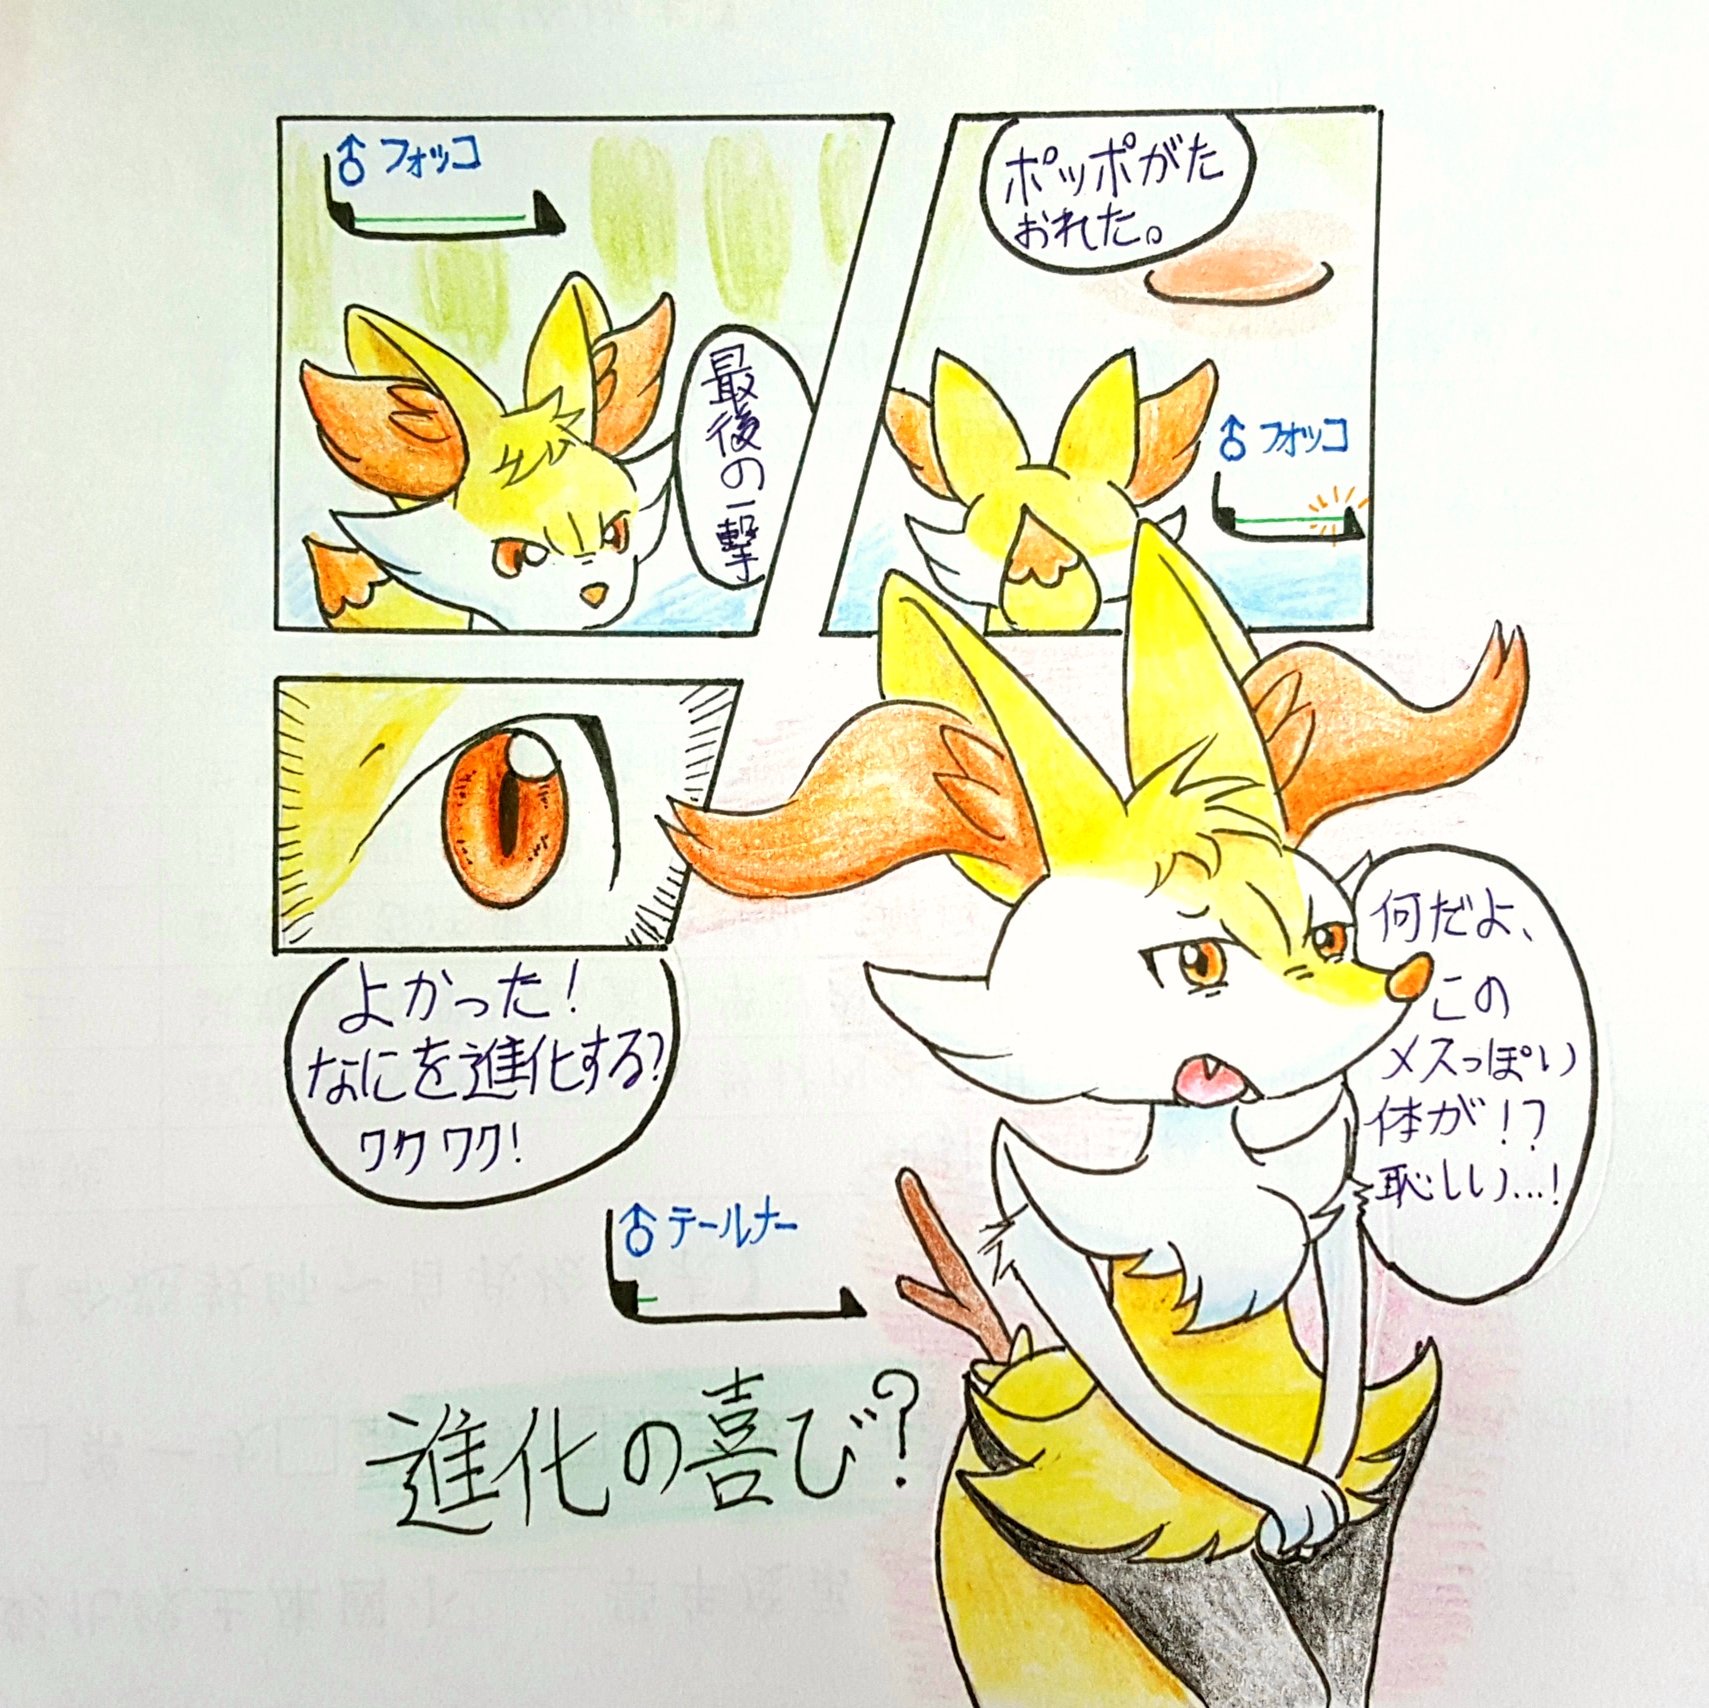 ♂フォッコ
最後の一撃
ポッポがた
おれた。
♂フォッコ
よかった!
なにを進化する?
ワクワク!
何だよ、
この
メスっぽい
体が!?
恥しい…!
♂テールナー
進化の喜び?